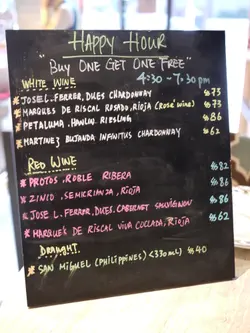 HAPPY HOUR
"BUY ONE GET ONE FREE"
4:30 - 7:30 pm
WHITE WINE
* JOSE L. FERRER, DUES CHARDONNAY $73
* MARQUES DE RISCAL ROSADO, RIOJA (rosé wine) $73
* PETALUMA, HANLIN RIESLING $86
* MARTINEZ BUJANDA INFINITUS CHARDONNAY $62
RED WINE
* PROTOS, ROBLE RIBERA $82
* ZINIO, SEMICRIANZA, RIOJA $86
* JOSE L. FERRER, DUES, CABERNET SAUVIGNON $86
* MARQUES DE RISCAL VIÑA COLLADA, RIOJA $62
DRAUGHT
* SAN MIGUEL (PHILIPPINES) <330ML> $40